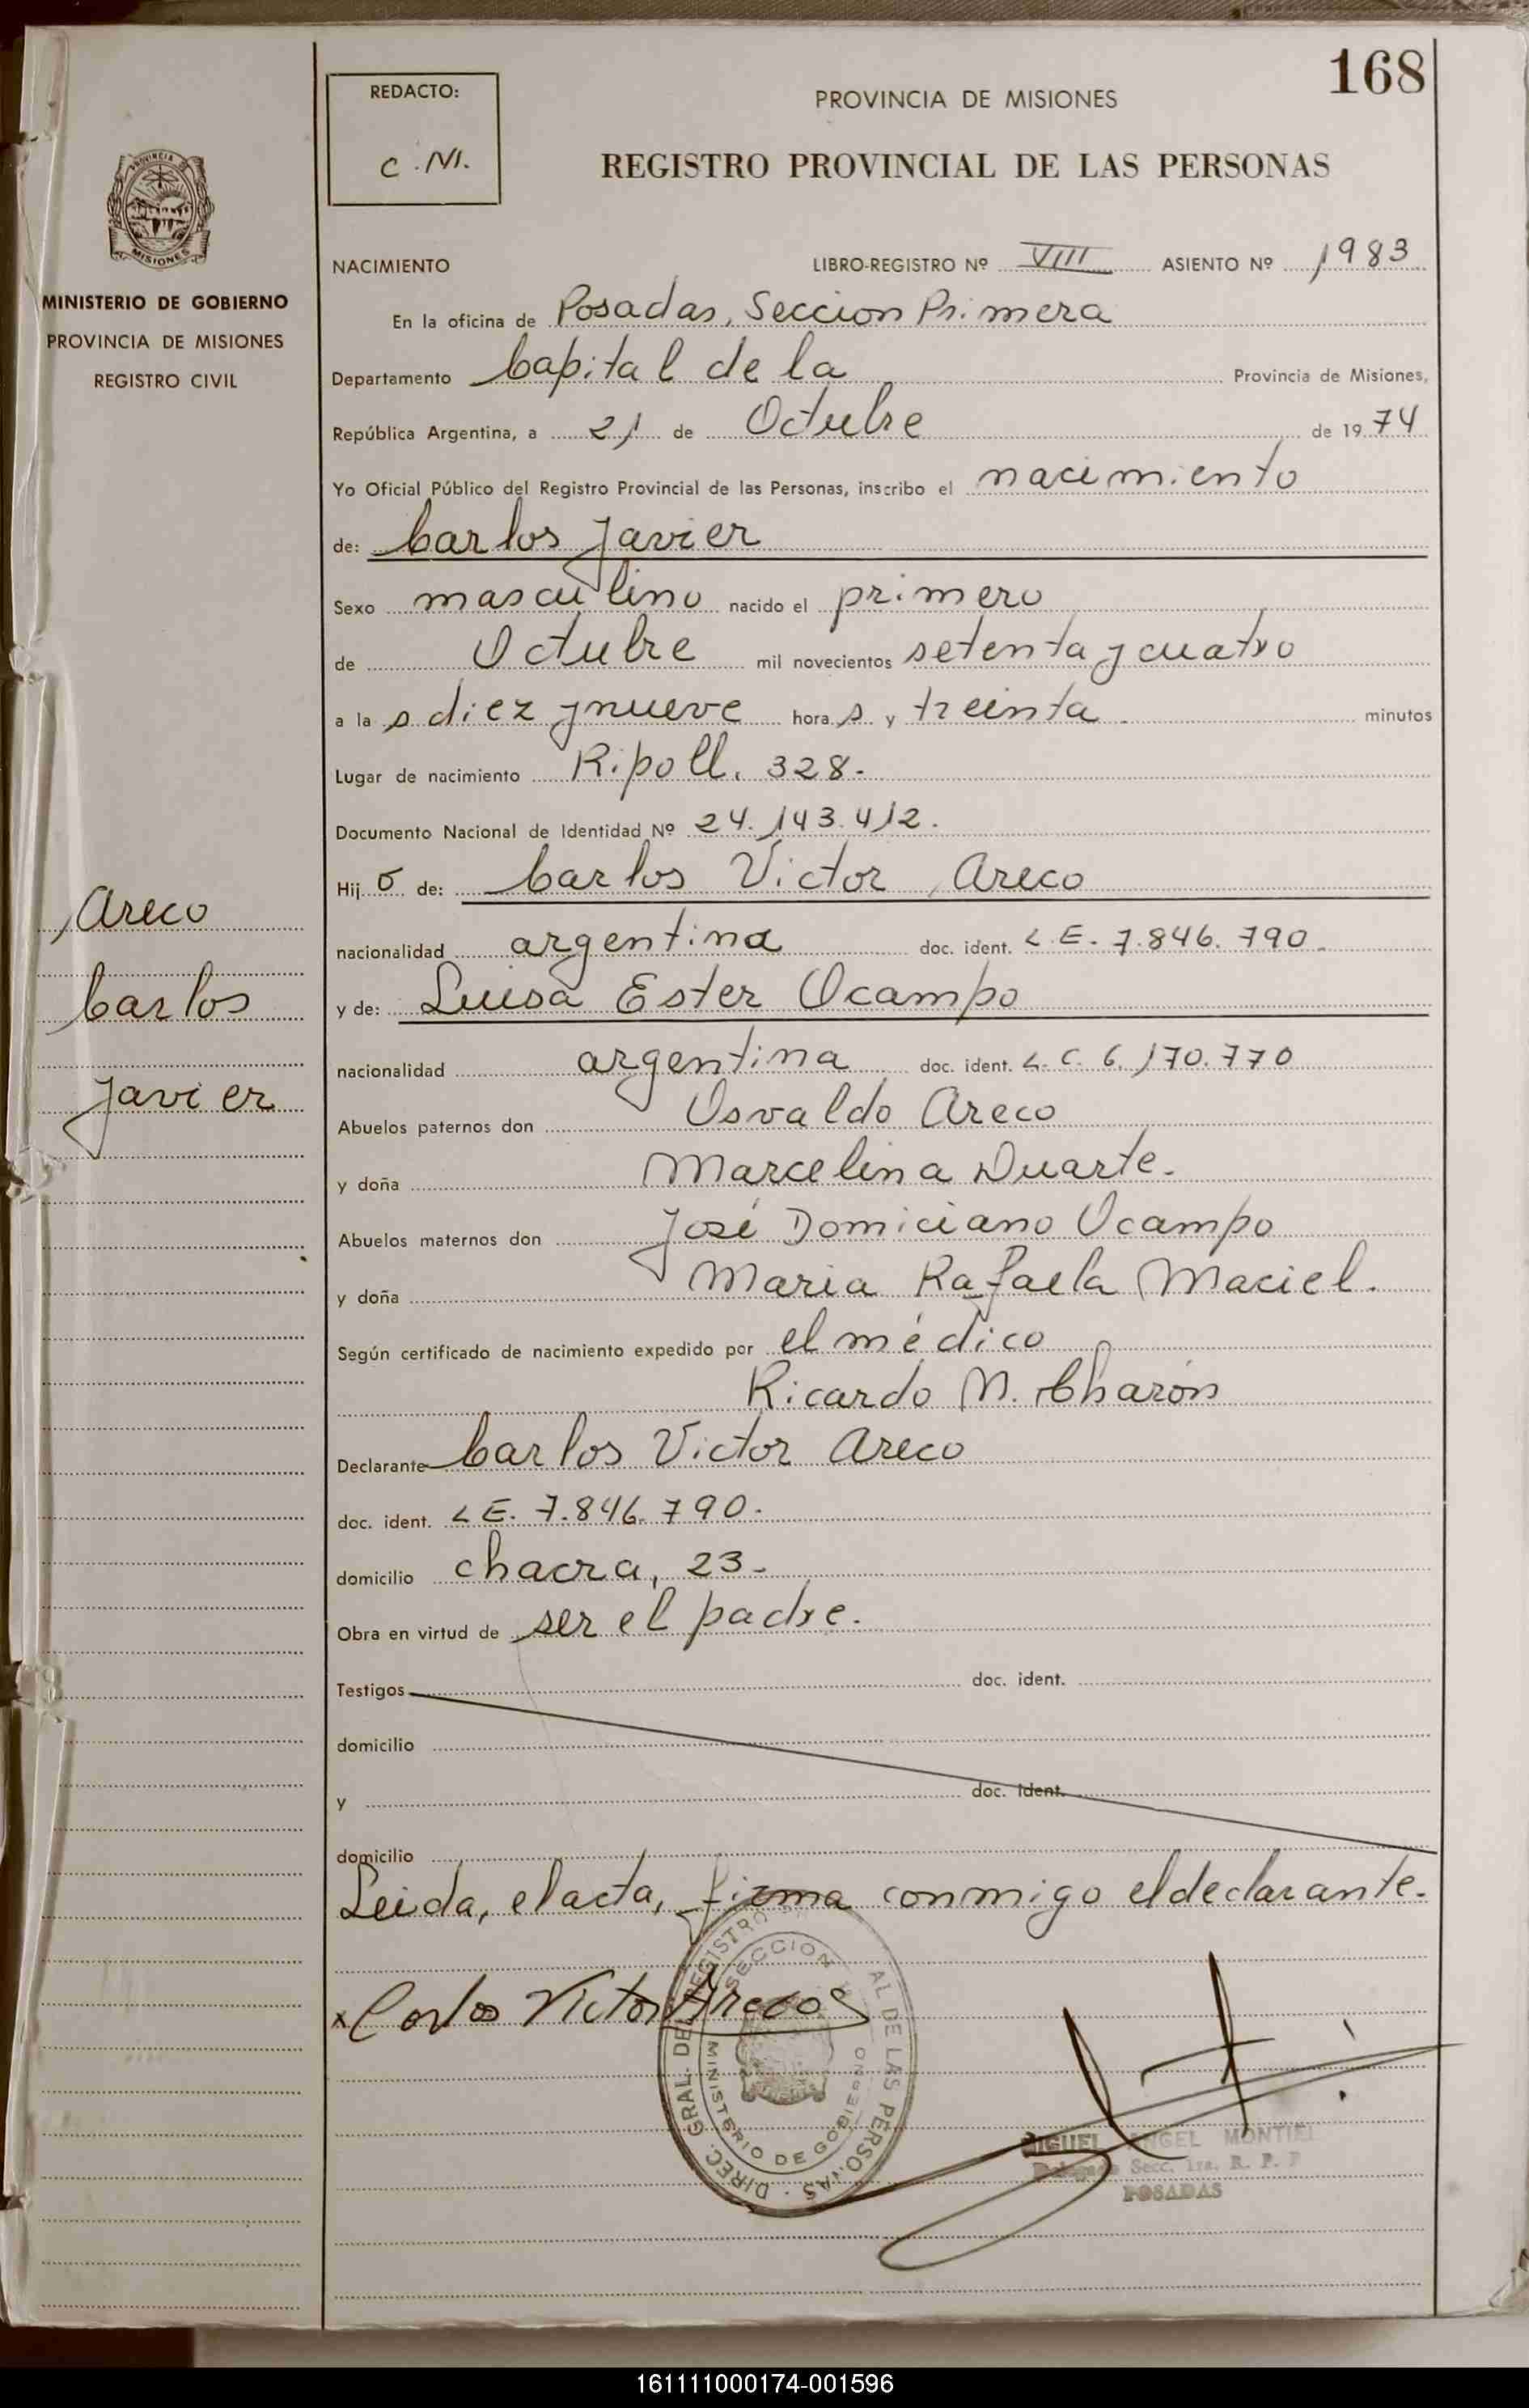 168
REDACTO:
C.M.
PROVINCIA DE MISIONES
REGISTRO PROVINCIAL DE LAS PERSONAS
PROVINCIA DE
MISIONES
MINISTERIO DE GOBIERNO
PROVINCIA DE MISIONES
REGISTRO CIVIL
NACIMIENTO LIBRO-REGISTRO Nº VIII ASIENTO Nº 1983
En la oficina de Posadas, Seccion Primera
Departamento Capital de la Provincia de Misiones,
República Argentina, a 21 de Octubre de 1974
Yo Oficial Público del Registro Provincial de las Personas, inscribo el nacimiento
de: Carlos Javier
Sexo masculino nacido el primero
de Octubre mil novecientos setenta y cuatro
a las diez y nueve horas y treinta minutos
Lugar de nacimiento Ripoll, 328.
Documento Nacional de Identidad Nº 24.143.412.
Hijo de: Carlos Victor Areco
nacionalidad argentina doc. ident. L.E. 7.846.790.
y de: Luisa Ester Ocampo
nacionalidad argentina doc. ident. L.C. 6.170.770
Abuelos paternos don Osvaldo Areco
y doña Marcelina Duarte.
Abuelos maternos don José Domiciano Ocampo
y doña Maria Rafaela Maciel.
Según certificado de nacimiento expedido por el médico
Ricardo M. Charón
Declarante Carlos Victor Areco
doc. ident. L E. 7.846.790.
domicilio chacra, 23.
Obra en virtud de ser el padre.
Testigos doc. ident.
domicilio
y doc. ident.
domicilio
Leida, el acta, firma conmigo el declarante.
x Carlos Victor Areco
Areco
Carlos
Javier
DIREC. GRAL. DEL REGISTRO AL DE LAS PERSONAS
SECCION
MINISTERIO DE GOBIERNO
MIGUEL ANGEL MONTIEL
Delegado Secc. 1ra. R. P. P
POSADAS
161111000174-001596